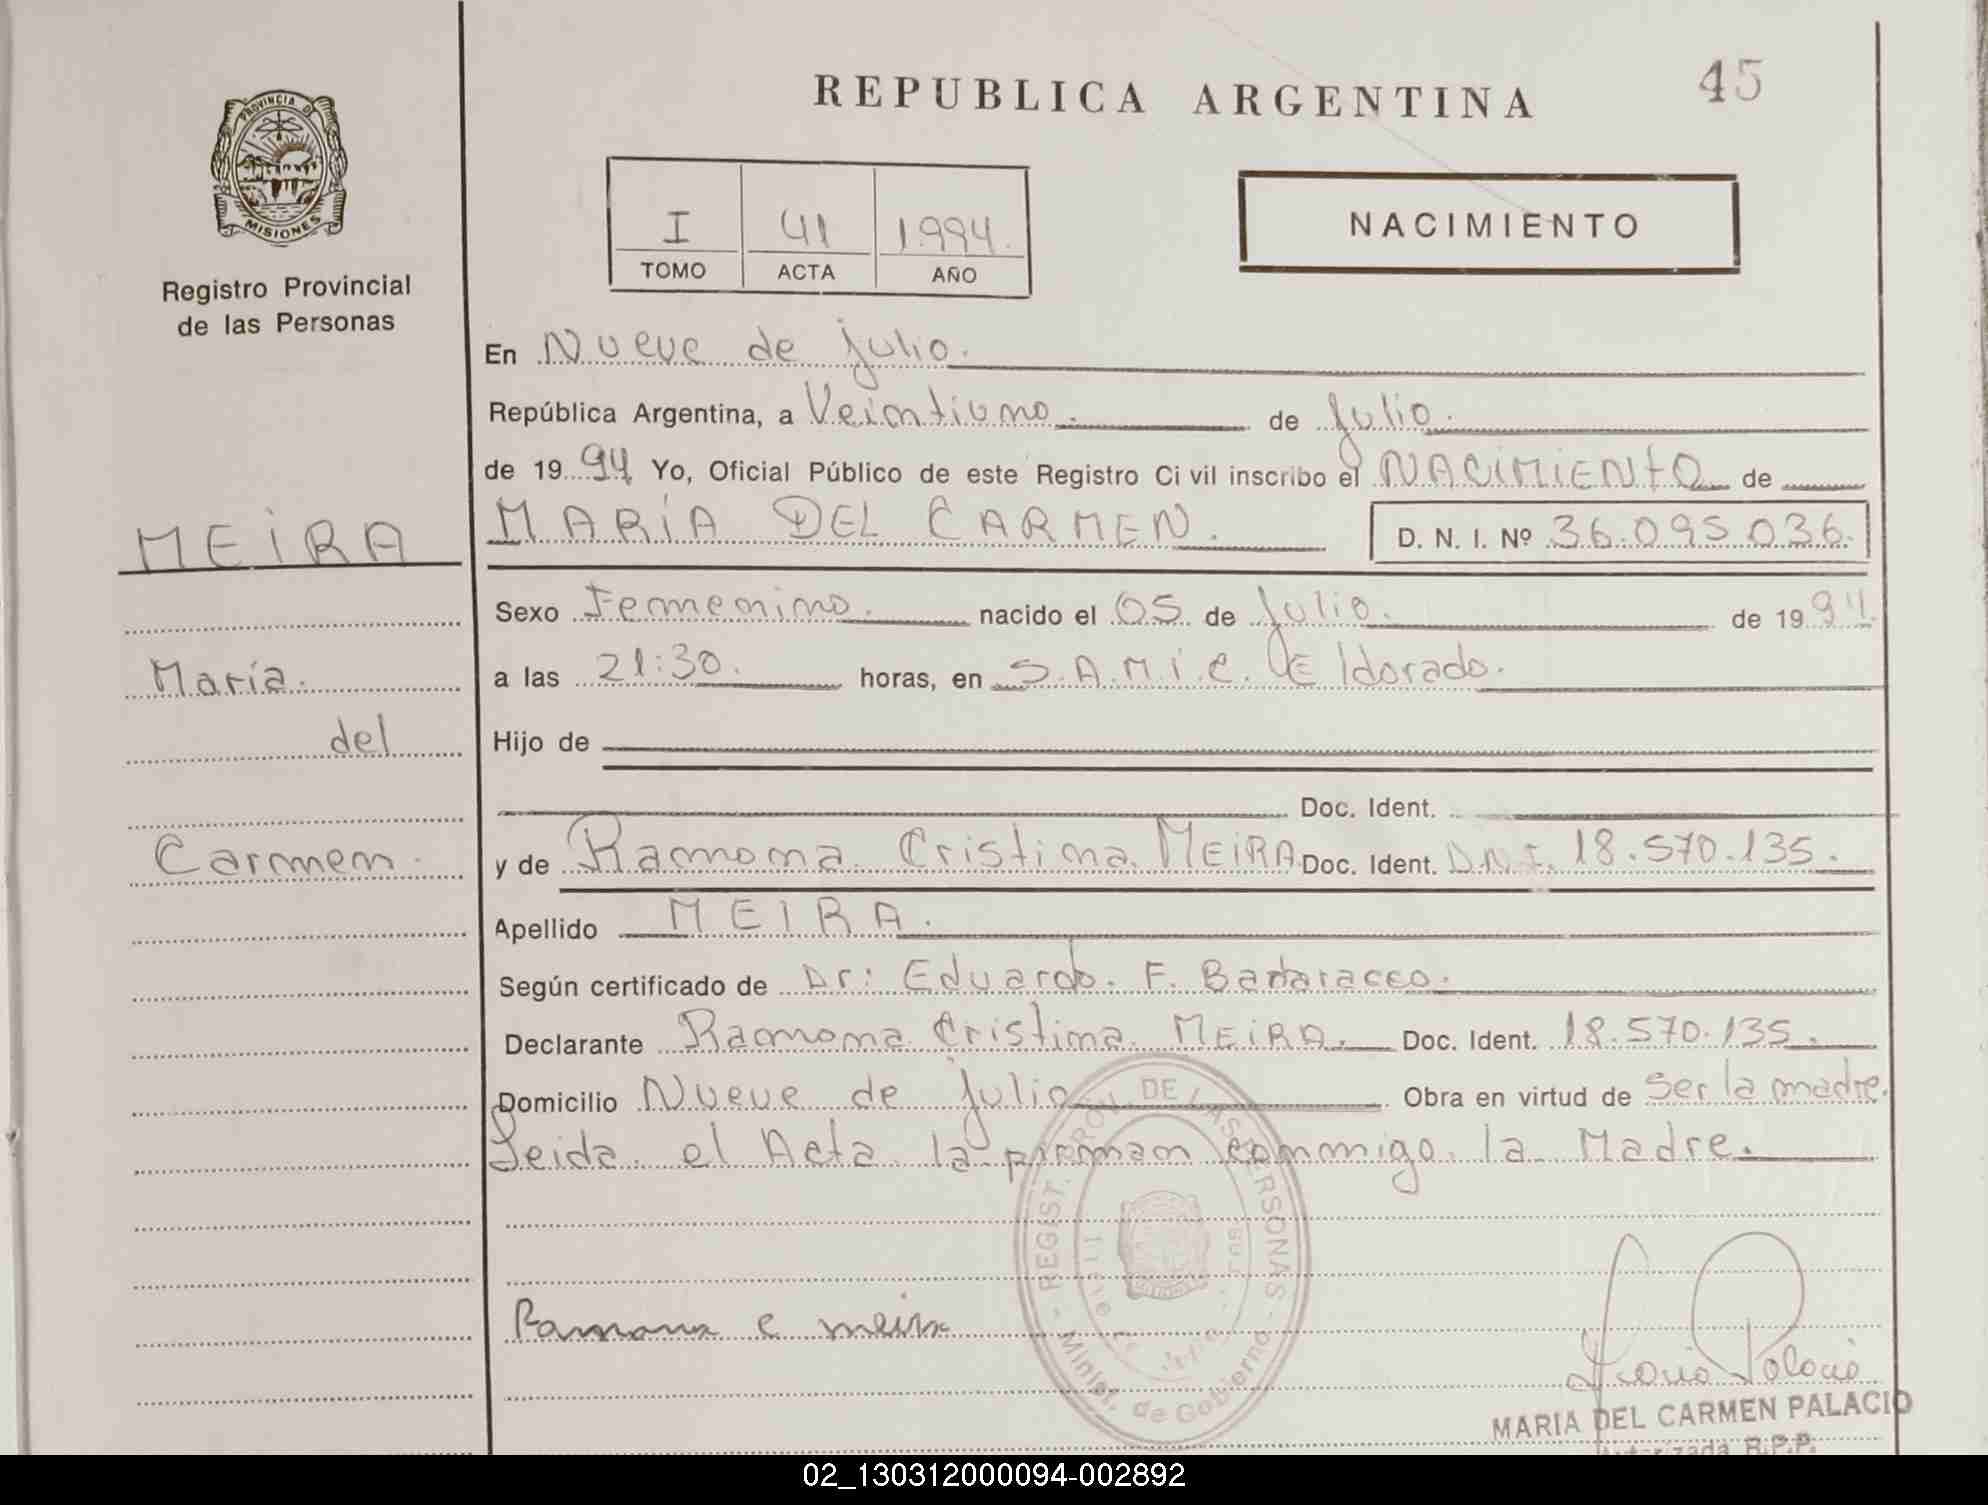 REPUBLICA ARGENTINA
45
PROVINCIA DE
MISIONES
Registro Provincial
de las Personas
I 41 1994.
TOMO ACTA AÑO
NACIMIENTO
En Nueve de julio.
República Argentina, a Veintiuno. de Julio.
de 19 94 Yo, Oficial Público de este Registro Civil inscribo el NACIMIENTO de
MEIRA
MARÍA DEL CARMEN. D. N. I. Nº 36.095.036.
Sexo Femenino. nacido el 05 de Julio. de 19 94.
María.
a las 21:30. horas, en S.A.M.i.C. Eldorado.
del
Hijo de
Doc. Ident.
Carmen.
y de Ramona Cristina MEIRA Doc. Ident. D.N.I. 18.570.135.
Apellido MEIRA.
Según certificado de Dr: Eduardo. F. Badaracco.
Declarante Ramona Cristina MEIRA. Doc. Ident. 18.570.135.
Domicilio Nueve de julio Obra en virtud de Ser la madre.
Leida el Acta la firman conmigo la Madre.
REGIST. PROV. DE LAS PERSONAS
Minist. de Gobierno
Ramona C Meira
Maria Palacio
MARIA DEL CARMEN PALACIO
Autorizada R.P.P.
02_130312000094-002892